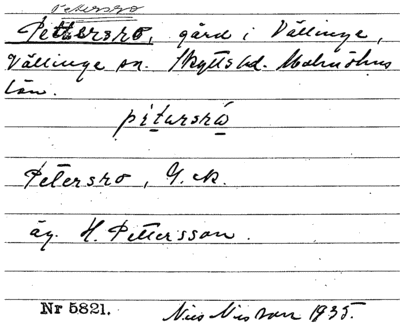 Petersro
Pettersro, gård i Vällinge,
Vällinge sn. Skytts hd. Malmöhus
län.
pitarsrå
Petersro, G.ek.
äg. H. Pettersson.
Nr 5821. Nils Nilsson 1935.